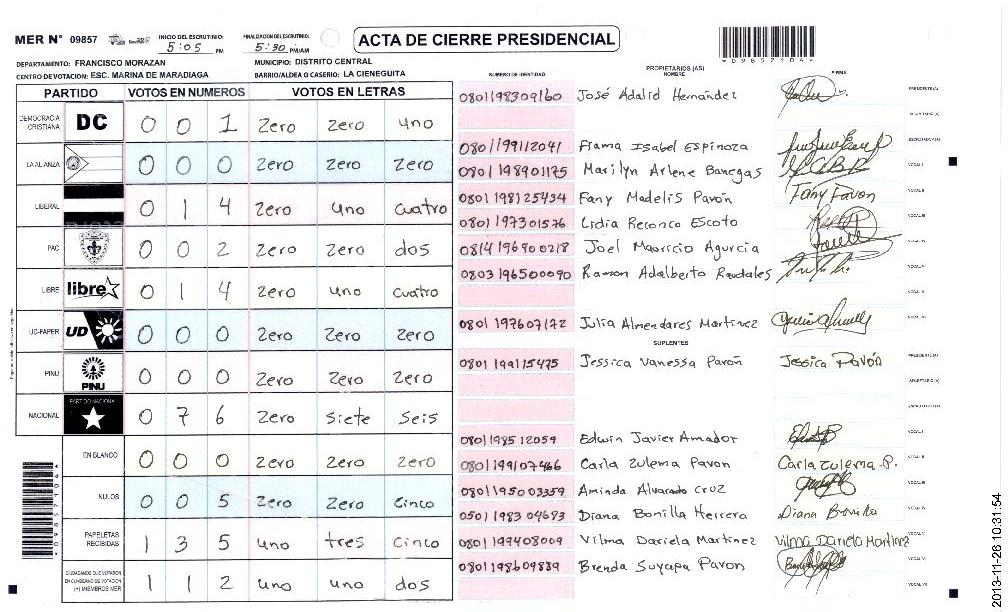 MER N° 09857
INICIO DEL ESCRUTINIO: 5:05 PM
FINALIZACION DEL ESCRUTINIO: 5:30 PM/AM
ACTA DE CIERRE PRESIDENCIAL
*09857104*
DEPARTAMENTO: FRANCISCO MORAZAN
MUNICIPIO: DISTRITO CENTRAL
CENTRO DE VOTACION: ESC. MARINA DE MARADIAGA
BARRIO/ALDEA O CASERIO: LA CIENEGUITA
PARTIDO VOTOS EN NUMEROS VOTOS EN LETRAS
DEMOCRACIA CRISTIANA DC 0 0 1 Zero Zero uno
LA ALIANZA 0 0 0 Zero Zero Zero
LIBERAL 0 1 4 Zero uno cuatro
PAC 0 0 2 Zero Zero dos
LIBRE libre 0 1 4 Zero uno cuatro
UD-FAPER UD 0 0 0 Zero Zero Zero
PINU PINU 0 0 0 Zero Zero Zero
NACIONAL PARTIDO NACIONAL 0 7 6 Zero Siete Seis
EN BLANCO 0 0 0 Zero Zero Zero
NULOS 0 0 5 Zero Zero Cinco
PAPELETAS RECIBIDAS 1 3 5 uno tres Cinco
CIUDADANOS QUE VOTARON EN CUADERNO DE VOTACION (+) MIEMBROS MER 1 1 2 uno uno dos
*09857104*
NUMERO DE IDENTIDAD
PROPIETARIOS (AS)
NOMBRE
FIRMA
0801198309160 José Adalid Hernández PRESIDENTE(A)
0801199112041 Frama Isabel Espinoza SECRETARIO(A)
0801198901175 Marilyn Arlene Banegas VOCAL I
0801198125434 Fany Madelis Pavón Fany Pavon VOCAL II
0801197301576 Lidia Reconco Escoto VOCAL III
0814196900218 Joel Mauricio Agurcia VOCAL IV
0803196500090 Ramon Adalberto Raudales VOCAL V
0801197607172 Julia Almendares Martinez
SUPLENTES
0801199115475 Jessica Vanessa Pavon Jessica Pavón PRESIDENTE(A)
0801198512059 Edwin Javier Amador VOCAL I
0801199107466 Carla Zulema Pavon Carla Zulema P. VOCAL II
0801195003359 Aminda Alvarado Cruz VOCAL III
0501198304693 Diana Bonilla Herrera Diana Bonilla VOCAL IV
0801199408009 Vilma Dariela Martinez Vilma Dariela Martinez VOCAL V
0801198609839 Brenda Suyapa Pavon VOCAL VI
VOCAL VII
2013-11-26 10:31:54